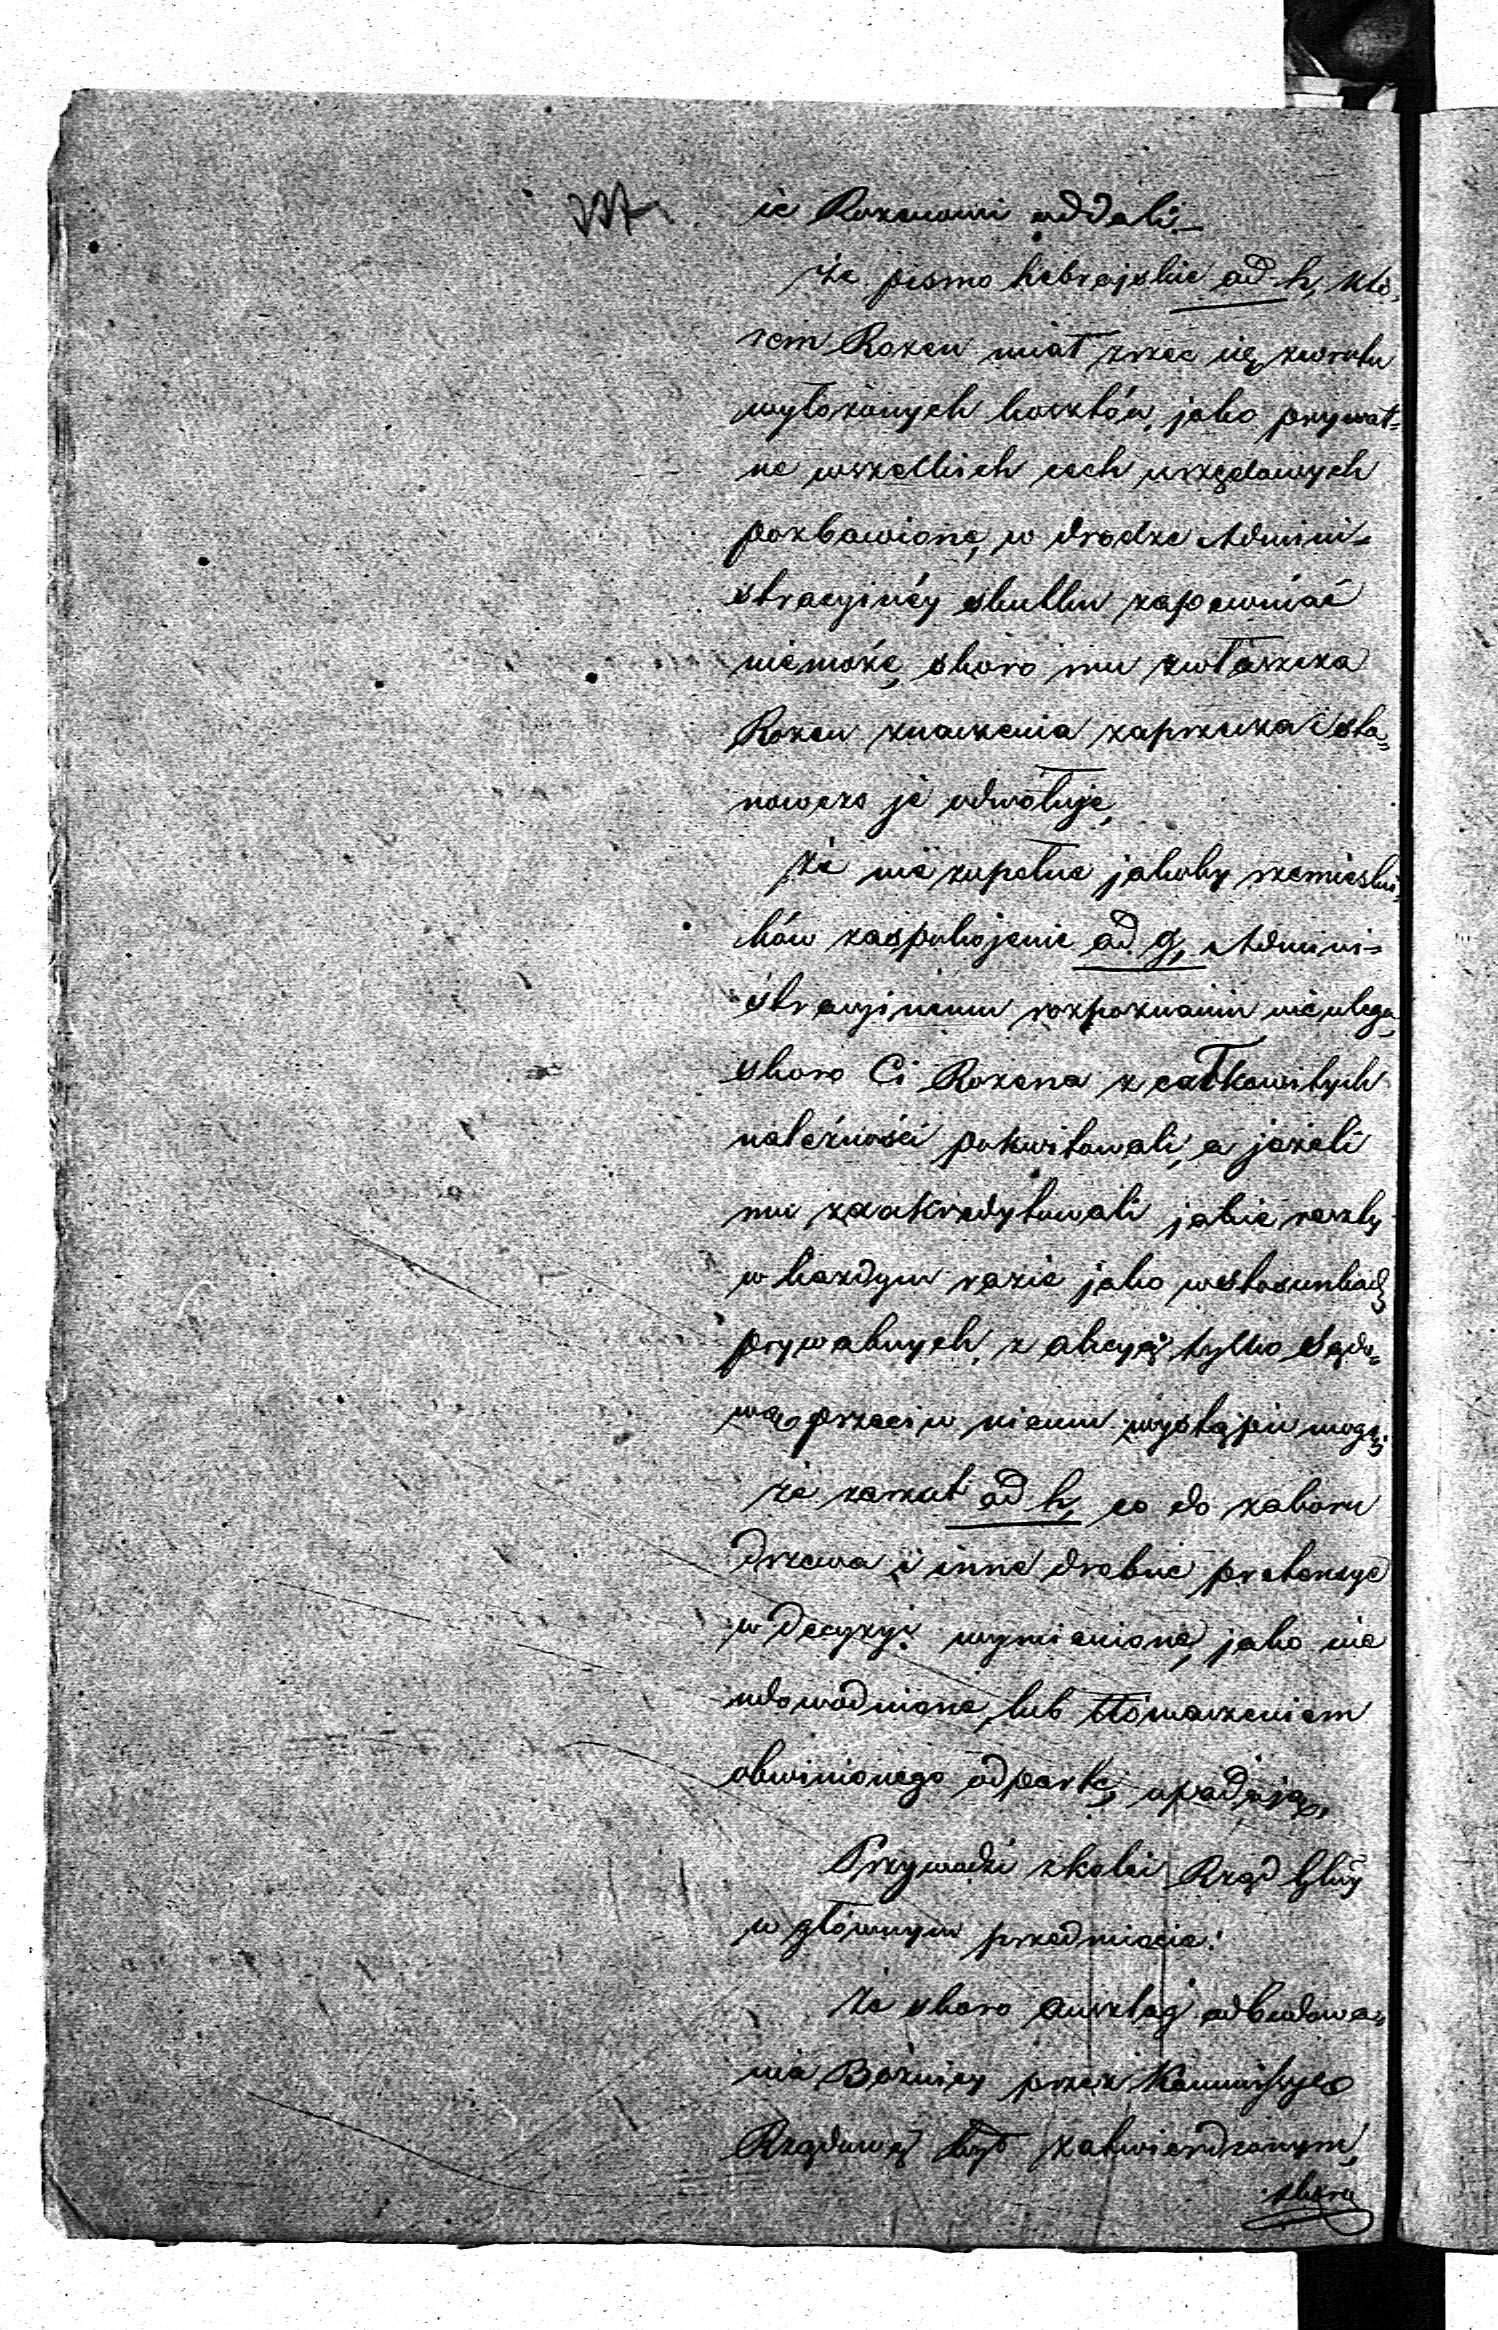 ie Rozenowi oddali.
że pismo hebrajskie ad h, któ-
rem Rozen miał zrzec się zwrotu
wyłożonych kosztów, jako prywat-
ne wszelkich cech urzędowych
pozbawione, w drodze Admini-
stracyinéy skutku zapewniać
niemoże, skoro mu zwłaszcza
Rozen znaczenia zaprzecza i sta-
nowczo je odwołuje,
że nie zupełne jakoby rzemieślni-
ków zaspokojenie ad g, Admini-
stracyinemu rozpoznaniu nieulega,
skoro Ci Rozena z całkowitych
należności pokwitowali, a jeżeli
mu zaakredytowali jakie reszty
w każdym razie jako w stosunkach
prywatnych, z akcyą tylko Sądo-
wą przeciw niemu wystąpić mogą;
że zarzut ad h, co do zaboru
drzewa i inne drobne pretensye
w decyzyi wymienione, jako nie
udowodnione, lub tłómaczeniem
obwinionego odparte, upadają,
Przywodzi z kolei Rząd Gbny
w głównym przedmiocie:
że skoro anszlag odbudowa-
nia Bóżnicy przez Kommissyę
Rządową był zatwierdzonym,
skoro